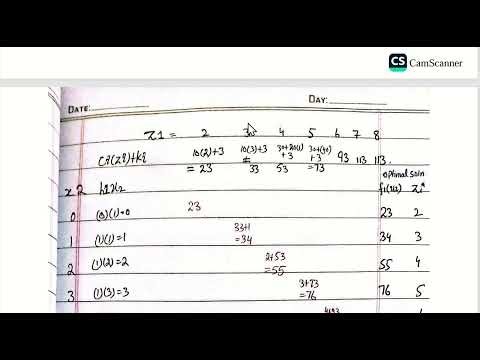 CS CamScanner
DATE: DAY:
x1 = 2 3 4 5 6 7 8
10(2)+3 10(3)+3 30+20(1)+3
= 23 33 53 =73 93 113 113
optimal soln
x2 h1x2
0 (0)(1)=0 23 23 2
1 (1)(1)=1 33+1 =34 34 3
2 (1)(2)=2 2+53 =55 55 4
3 (1)(3)=3 3+73 =76 76 5